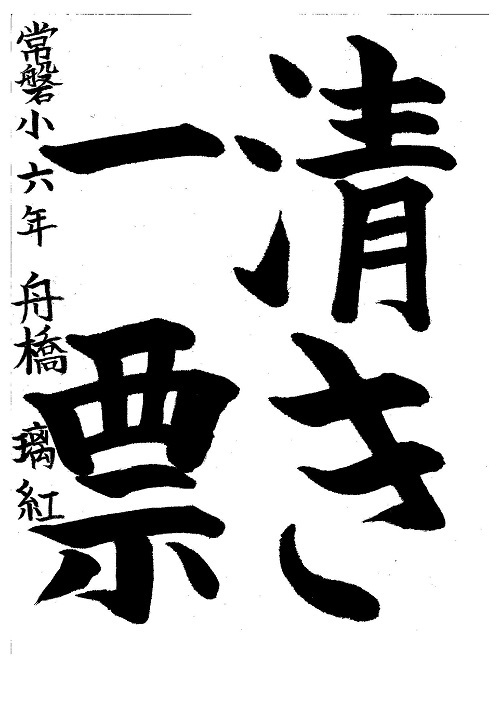 清き
一票
常磐小 六年 舟橋 璃紅